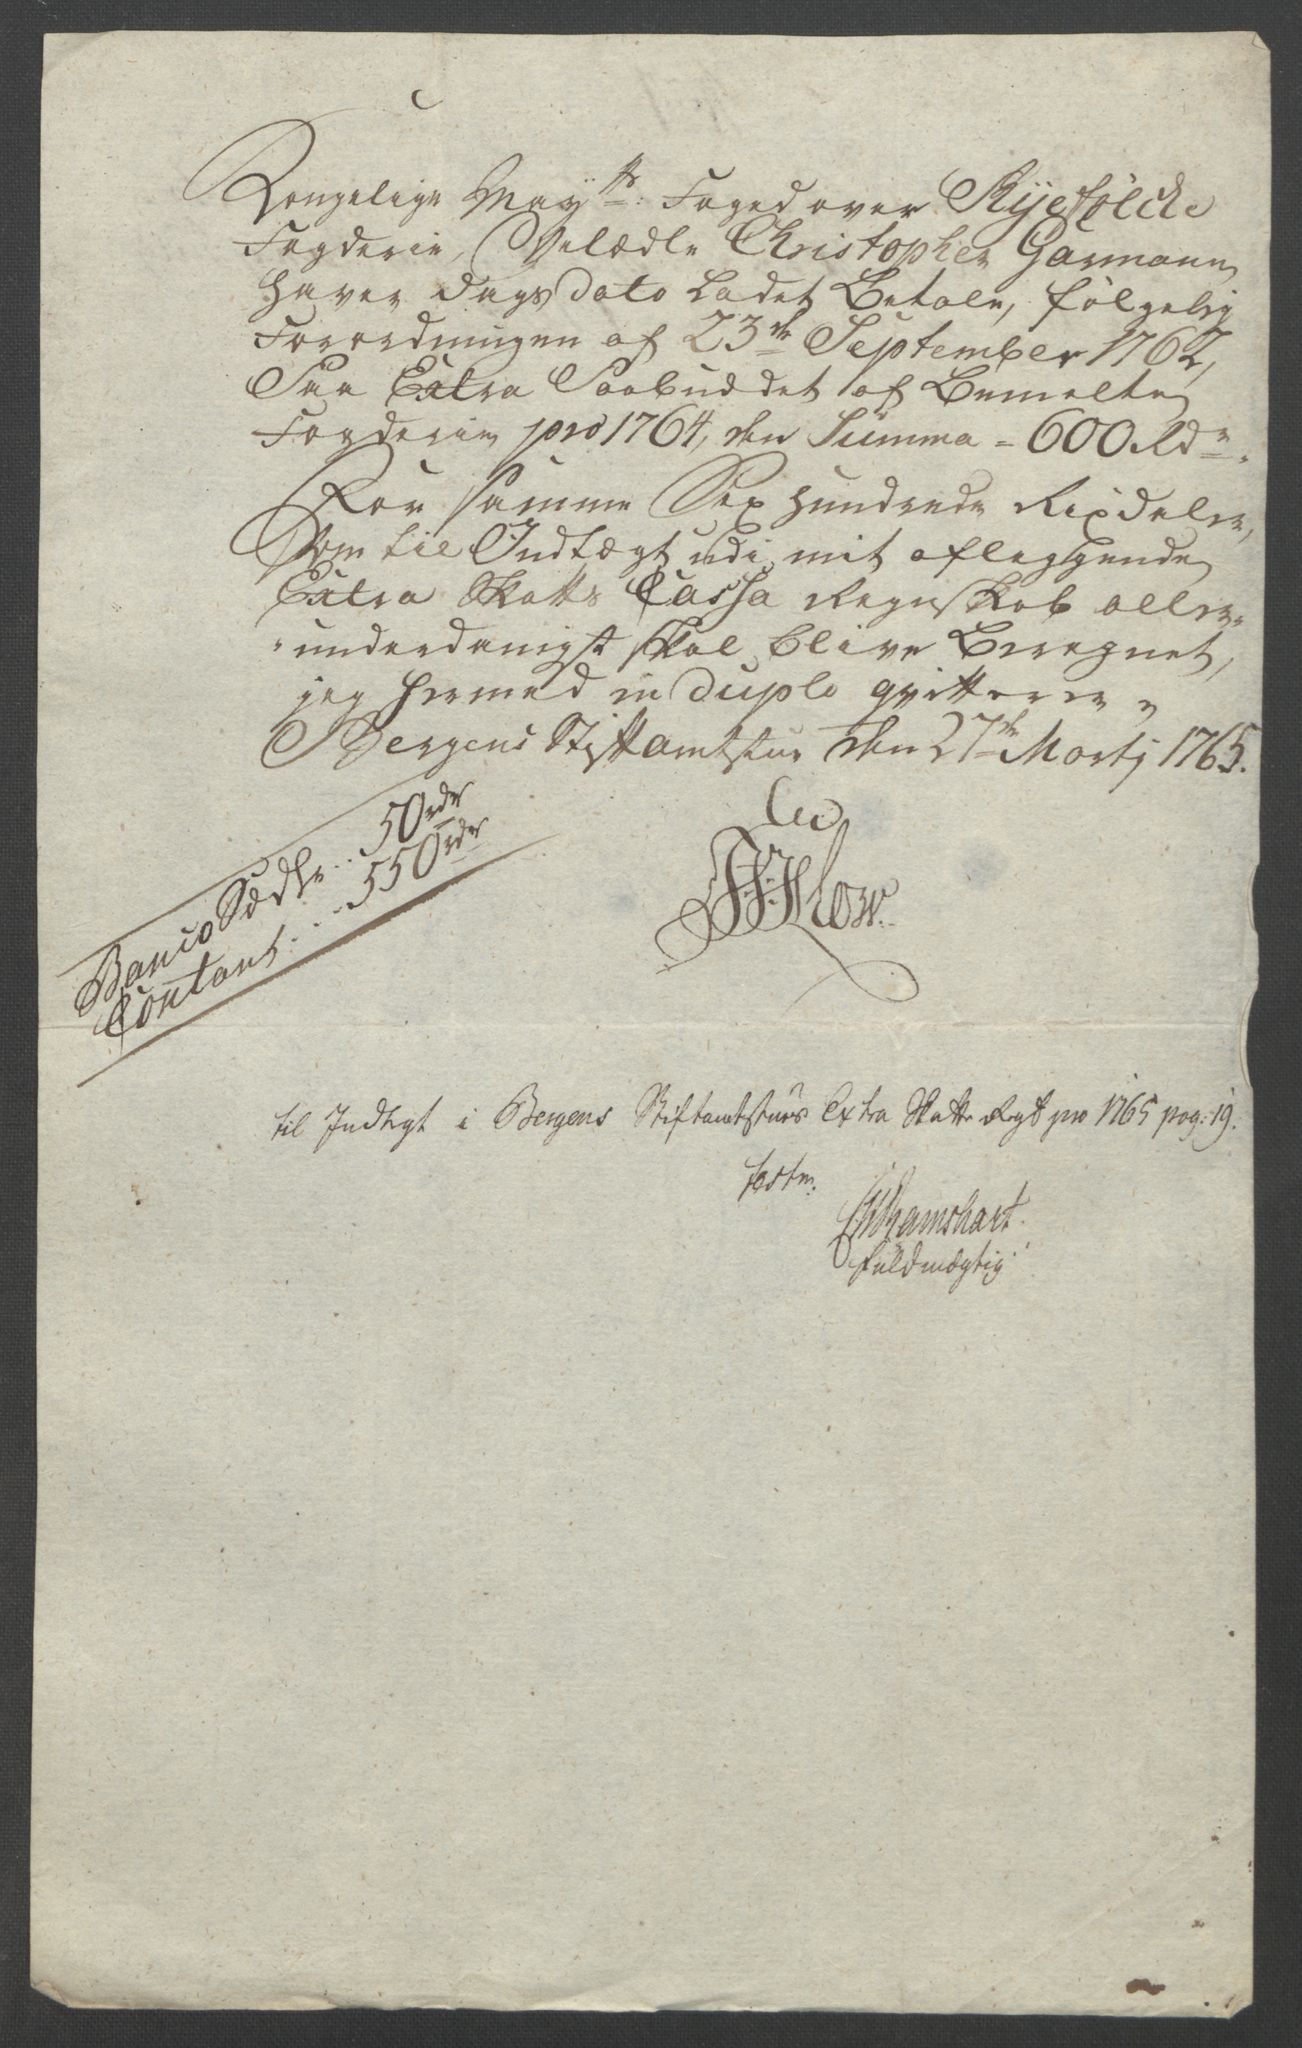 Kongelige May.ts Foged over Ryefölcke
Fogderie, Velædle Christopher Garmann,
haver dags dato Ladet Betale, følgelig
Forordningen af 23de September 1762,
Paa Extra Paabuddet af Bemelte
Fogderie pro 1764, den Summa = 600 Rdr.
For samme Sex hundrede Rixdaler,
som til Indtægt udi mit aflæggende
Extra Skatts Cassa Regnskab aller-
underdanigst skal blive Beregnet,
jeg hermed in duplo qvitterer,
Bergens Stiftamtstue den 27de Martj 1765.
Banco Sedler.. 50 rdr
Contant.... 550 rdr
til Indtegt i Bergens Stiftamtstues Extra Skatte Regsk pro 1765 pag: 19.
testm:
fuldmægtig